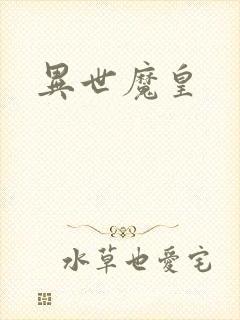 異世魔皇
水草也愛宅